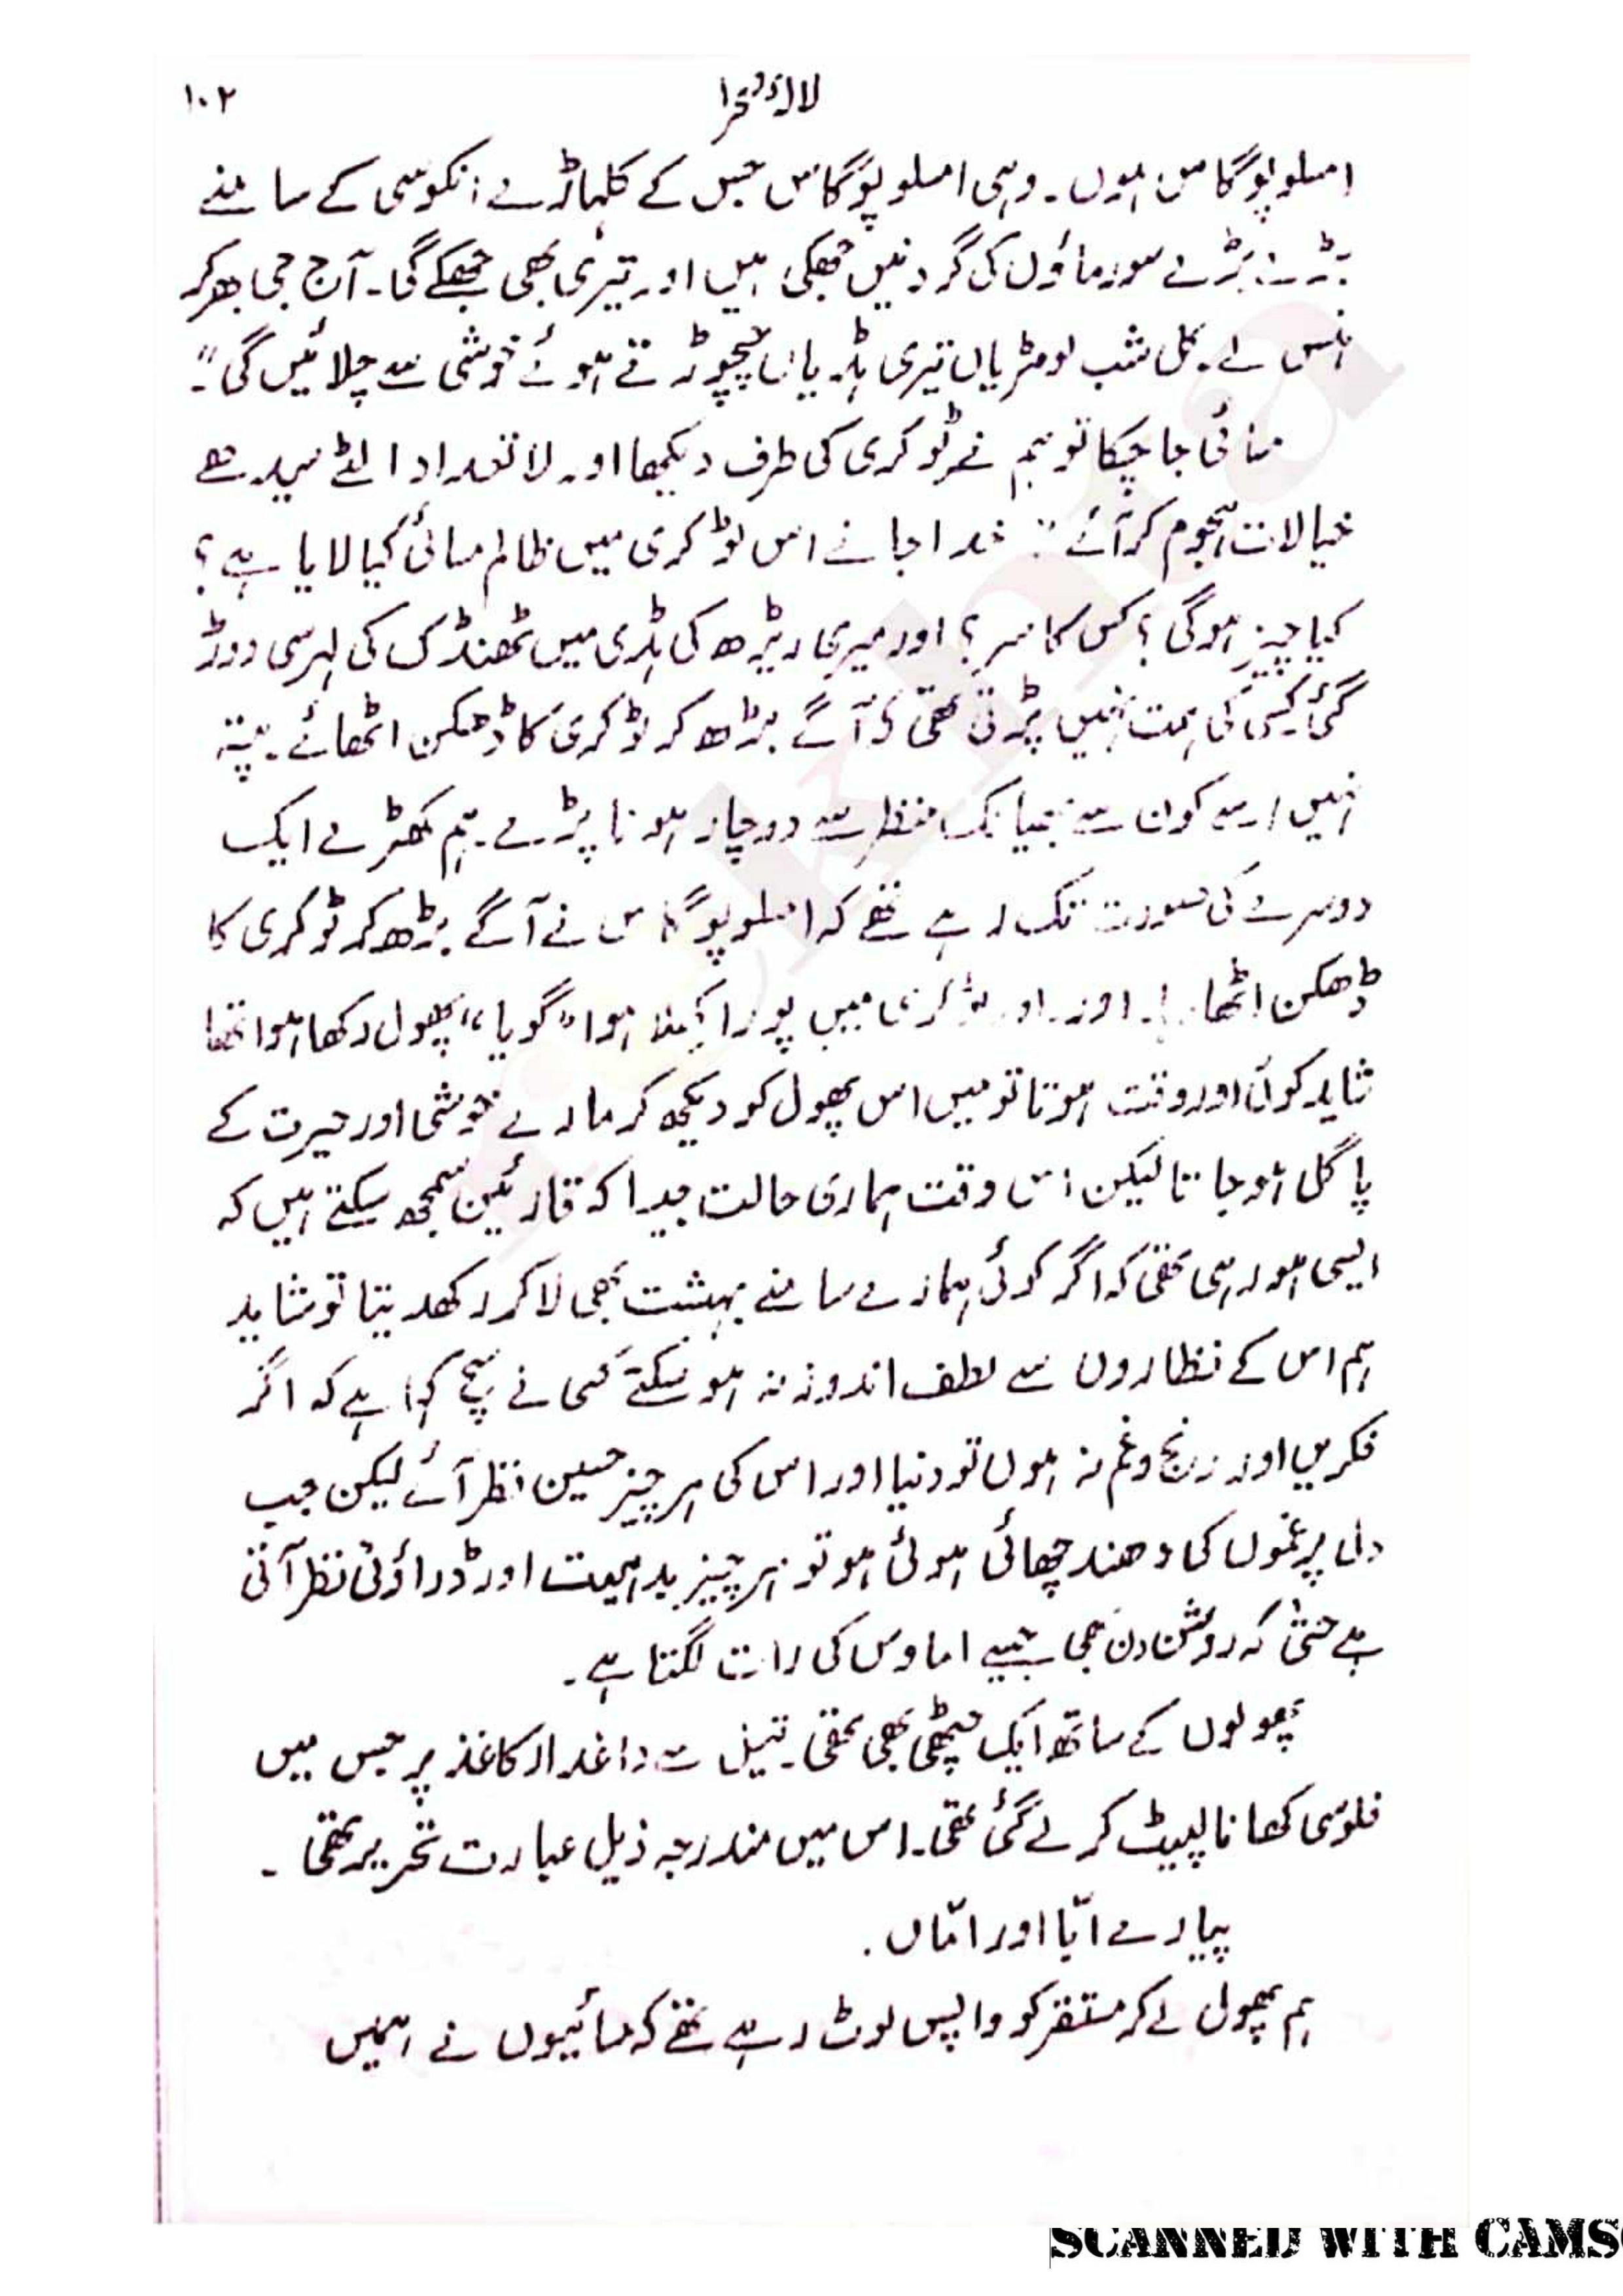 لالۂ صحرا ۱۰۲
امسلوپوگاس ہوں۔ وہی امسلوپوگاس جس کے کلہاڑے انکوسی کے سامنے
بڑے بڑے سورماؤں کی گردنیں جھکی ہیں اور تیری بھی جھکے گی۔ آج جی بھر کر
ہنس لے۔ کل شب لومڑیاں تیری ہڈیاں نچوڑتے ہوئے خوشی سے چلائیں گی"۔
مسائی جا چکا تو ہم نے ٹوکری کی طرف دیکھا اور لاتعداد الٹے سیدھے
خیالات ہجوم کر آئے ": خدا جانے اس ٹوکری میں ظالم مسائی کیا لایا ہے؟
کیا چیز ہوگی؟ کس کا سر؟ اور میری ریڑھ کی ہڈی میں ٹھنڈک کی لہر سی دوڑ
گئی۔ کسی کی ہمت نہیں پڑتی تھی کہ آگے بڑھ کر ٹوکری کا ڈھکن اٹھائے۔ پتہ
نہیں اسے کون سے بھیانک منظر سے دوچار ہونا پڑے۔ ہم کھڑے ایک
دوسرے کی صورت تک رہے تھے کہ امسلوپوگاس نے آگے بڑھ کر ٹوکری کا
ڈھکن اٹھا دیا۔ اور اور ٹوکری میں پورا کھلا ہوا "گویا" پھول رکھا ہوا تھا
شاید کوئی اور وقت ہوتا تو میں اس پھول کو دیکھ کر مارے خوشی اور حیرت کے
پاگل ہو جاتا لیکن اس وقت ہماری حالت جیسا کہ قارئین سمجھ سکتے ہیں کہ
ایسی ہو رہی تھی کہ اگر کوئی ہمارے سامنے بہشت بھی لا کر رکھ دیتا تو شاید
ہم اس کے نظاروں سے لطف اندوز نہ ہو سکتے کسی نے سچ کہا ہے کہ اگر
فکریں اور رنج و غم نہ ہوں تو دنیا اور اس کی ہر چیز حسین نظر آئے لیکن جب
دل پر غموں کی دھند چھائی ہوئی ہو تو ہر چیز بد ہیت اور ڈراؤنی نظر آتی
ہے حتیٰ کہ روشن دن بھی جیسے اماوس کی رات لگتا ہے۔
پھولوں کے ساتھ ایک چٹھی بھی تھی۔ تیل سے داغدار کاغذ پر جس میں
فلوسی کھانا لپیٹ کر لے گئی تھی۔ اس میں مندرجہ ذیل عبارت تحریر تھی۔
پیارے ابّا اور امّاں۔
ہم پھول لے کر مستقر کو واپس لوٹ رہے تھے کہ مسائیوں نے ہمیں
SCANNED WITH CAMS